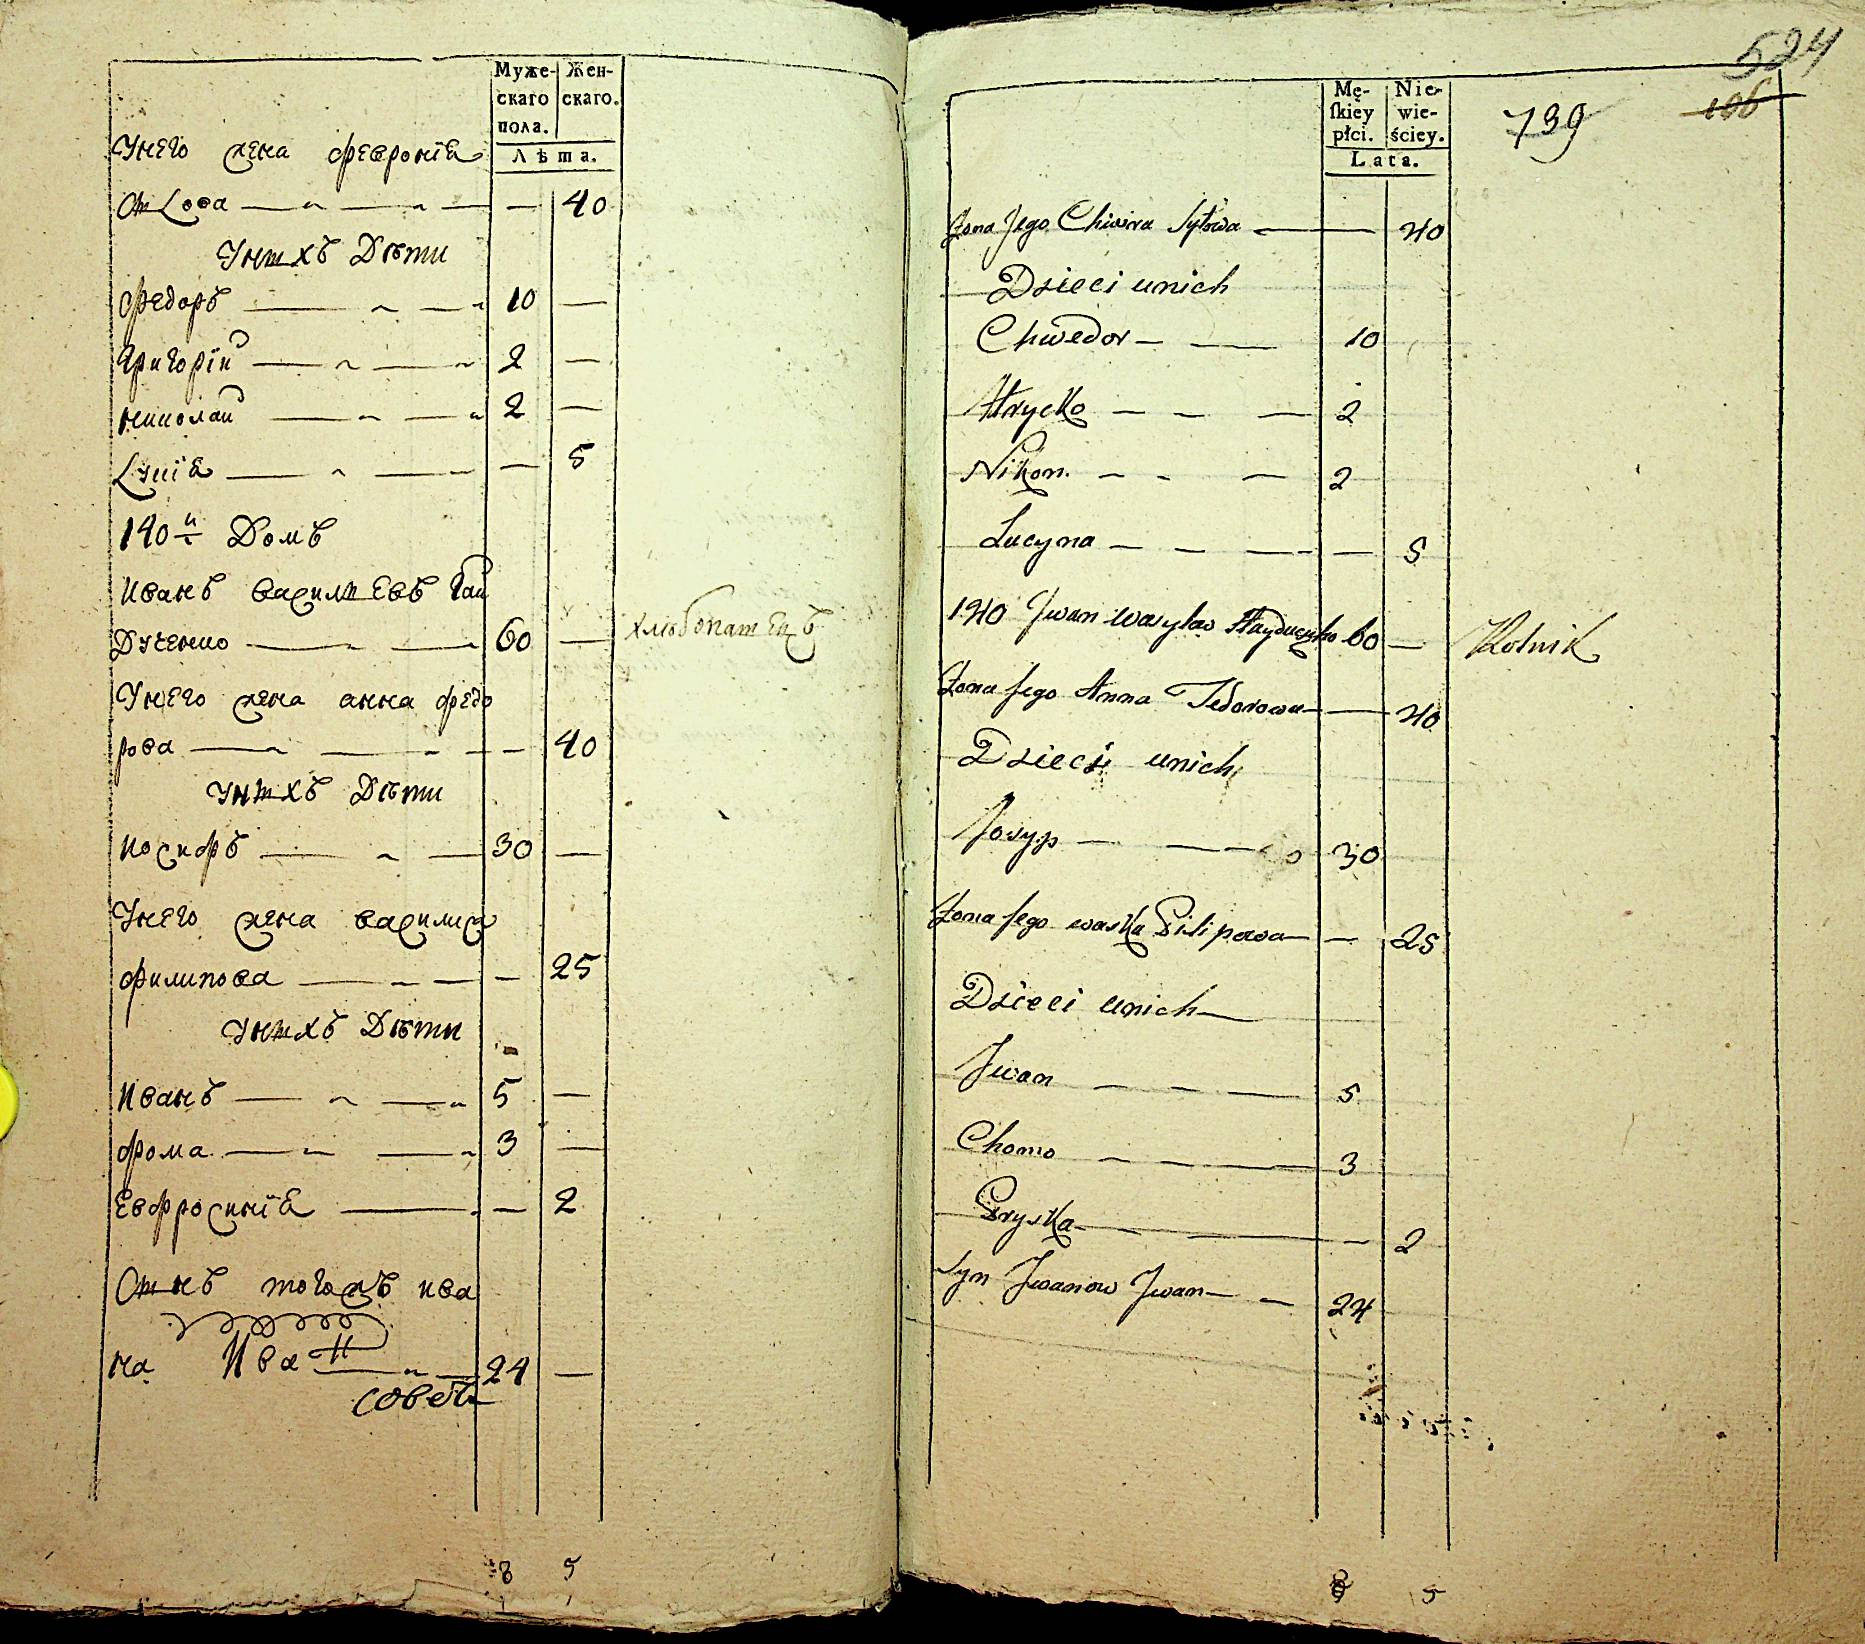 Муже-
скаго
пола.
Жен-
скаго.
Лѣта.
Унего жена феврониѣ
40
Унихъ Дѣти
Федоръ 10 —
Григорїй 2 —
николай 2 —
Луцїѣ — 5
140й Домъ
Иванъ василиевъ Гай
Дученко 60 — хлѣбопашецъ
Унего жена анна федо
рова — 40
Унихъ Дѣти
иосифъ 30 —
Унего жена василиса
филипова — 25
Унихъ Дѣти
Иванъ 5 —
фома 3 —
Евфросинїѣ — 2
Сынъ тогожъ ива
на Иван 24 —
совет
8 5
524
106
739
Mę-
ſkiey
płci.
Nie-
wie-
ściey.
Lata.
Żona Jego Chiwra Sytowa — 40
Dzieci unich
Chwedor — 10
Hrycko — 2
Nikon — 2
Lucyna — 5
140 Jwan wasylow Hayduczko 60 — Rolnik
Żona Jego Anna Fedorowa — 40
Dzieci unich
Josyp — 30
Żona Jego waska Pilipowa — 25
Dzieci unich
Jwan — 5
Chomo — 3
Pryska — 2
Syn Jwanow Jwan — 24
8 5